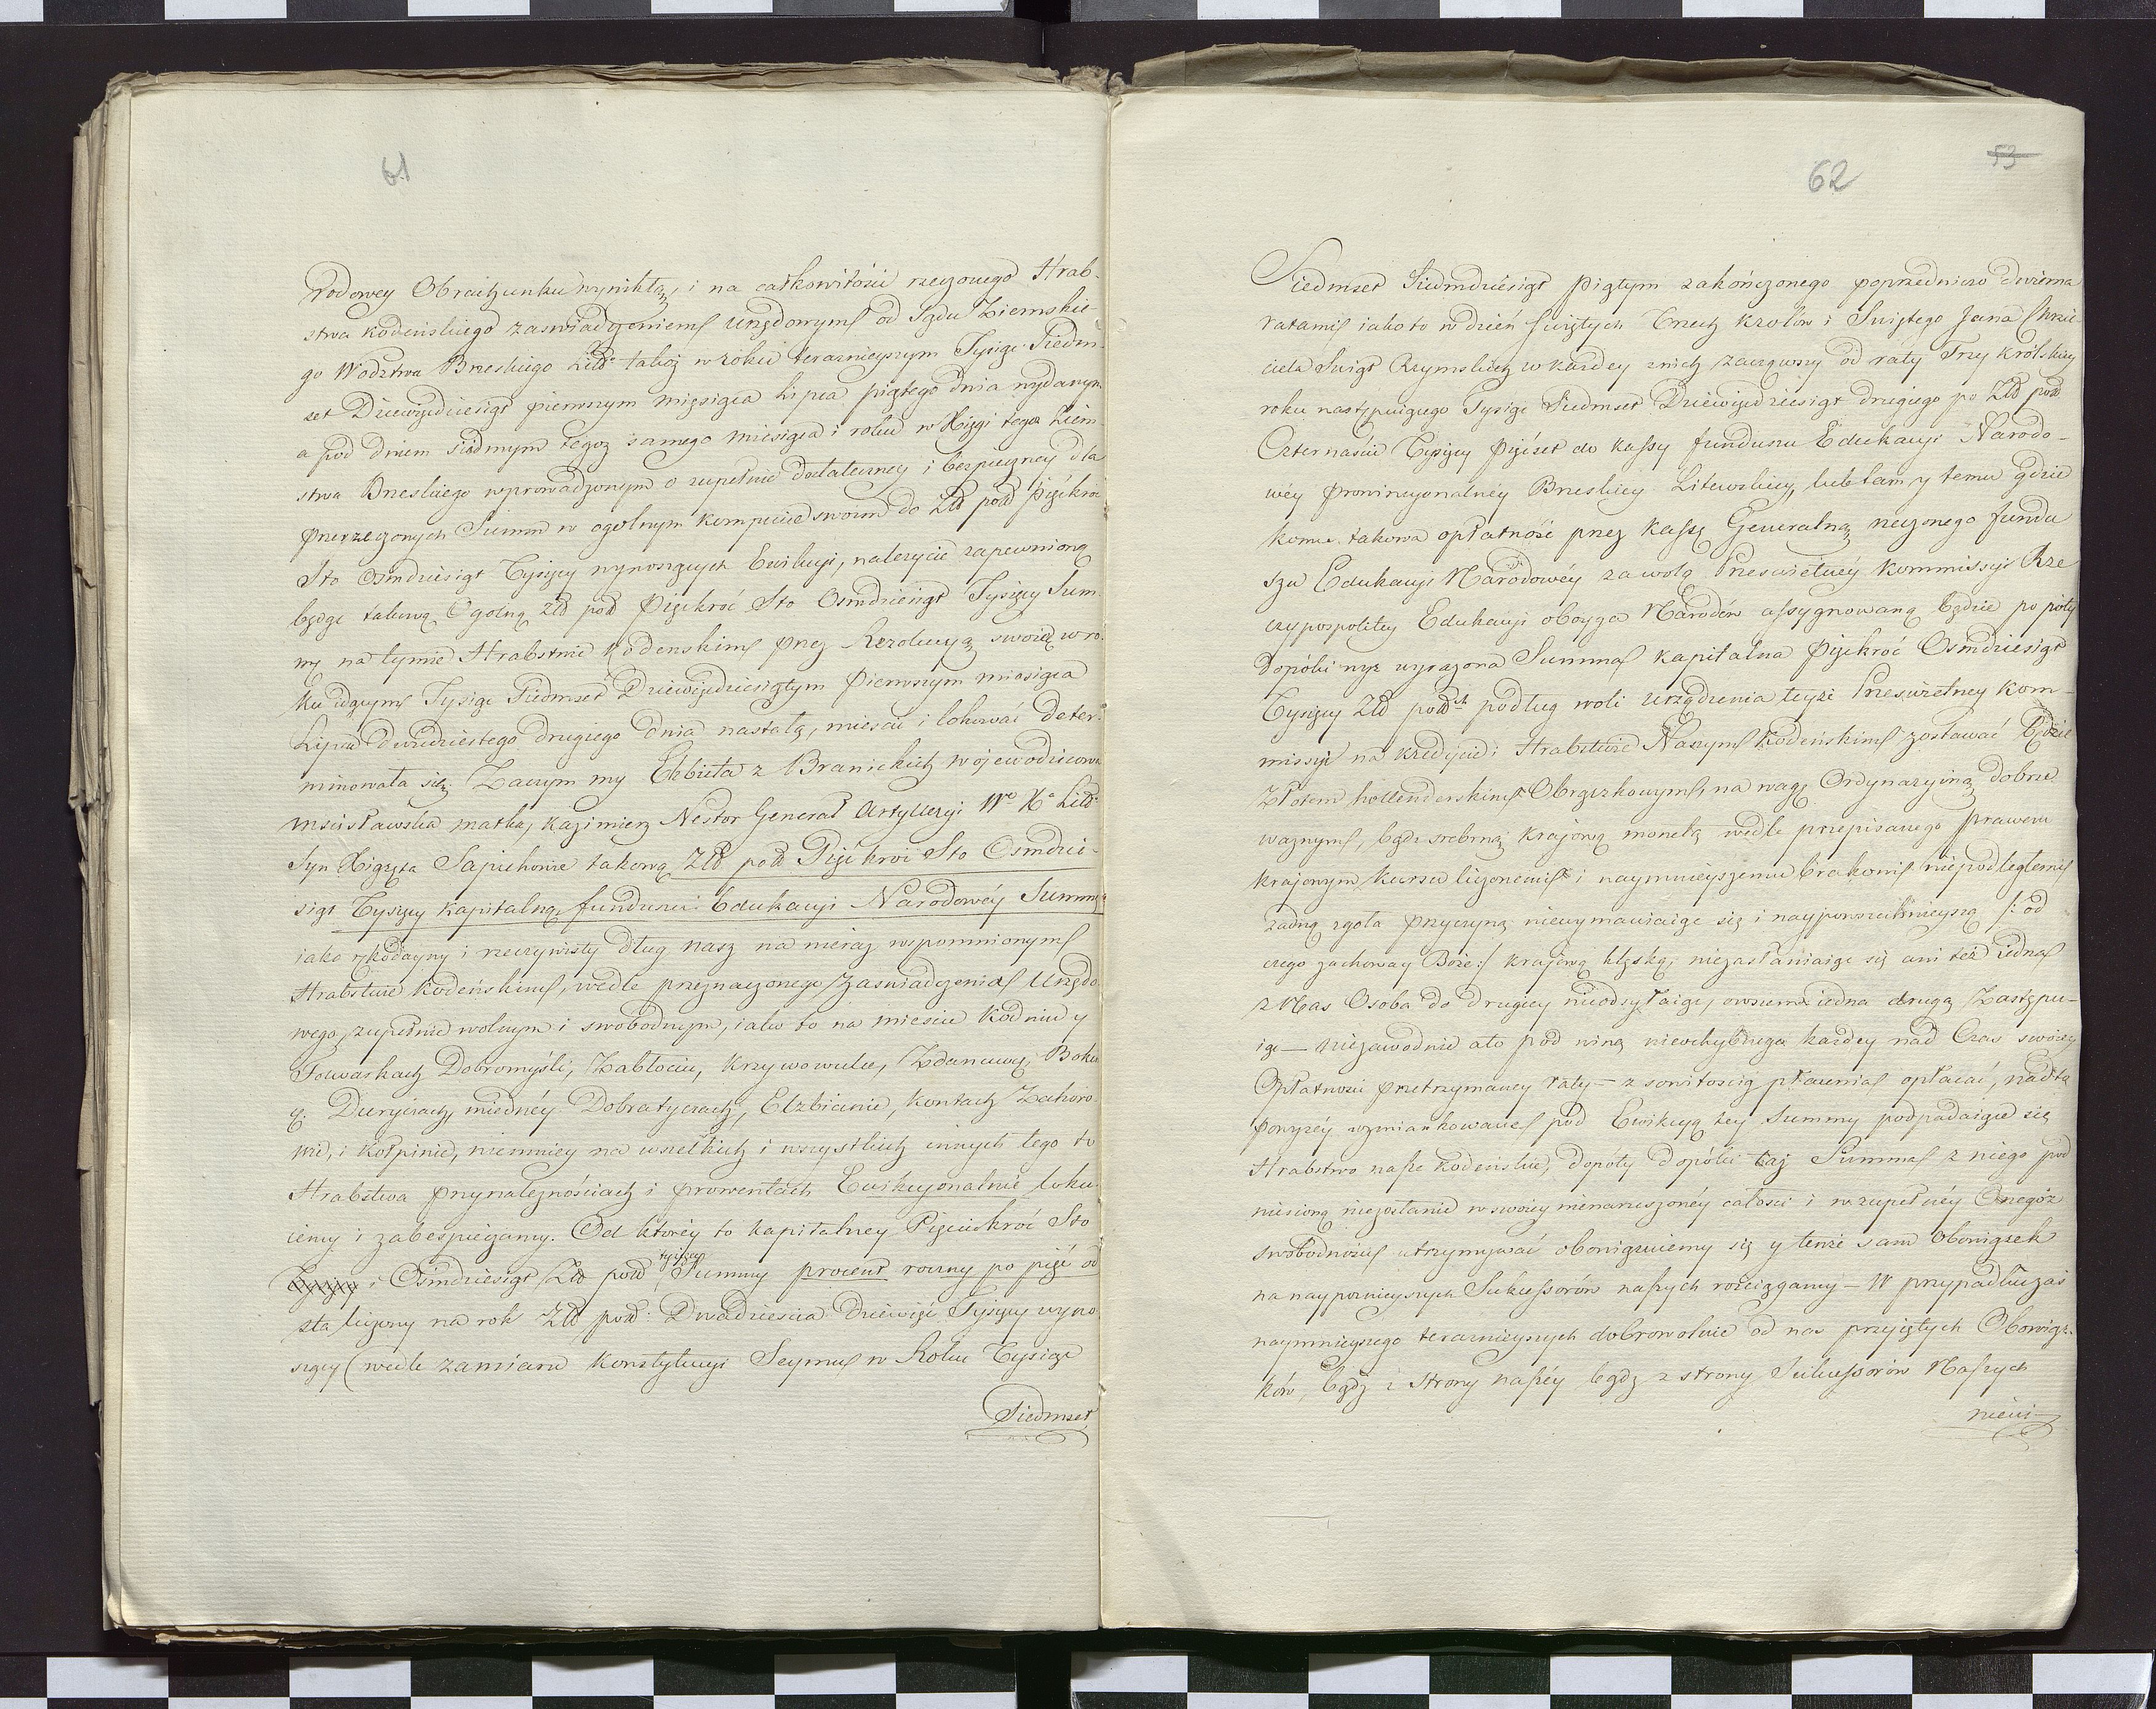 61
rodowey Obrachunku wynikłą, i na całkowitości rzeczonego Hrab-
stwa Kodeńskiego zaswiadczeniem urzędowym od Sądu Ziemskie-
go Wodztwa Brzeskiego Litto takoż w roku terazniejszym Tysiąc Siedm-
set Dziewięćdziesiąt pierwszym miesiąca Lipca piątego dnia wydanym
a pod dniem siodmym tegoż samego miesiąca i roku w Xięgi tegoż Ziem
stwa Brzeskiego wprowadzonym o zupełnie dostateczney i bezpieczney dla
przerzeczonych Summ w ogolnym kompucie swoim do Złł polł Pięćkroć
Sto Osmdziesiąt Tysięcy wynoszących Ewikcyi, należycie zapewnioną
będąc takową Ogolną Złł polł Pięćkroć Sto Osmdziesiąt Tysięcy Sum-
mę na tymże Hrabstwie Kodenskim przez Rezolucyą swoię w ro-
ku idącym Tysiąc Siedmset Dziewięćdziesiątym pierwszym miesiąca
Lipca dwudziestego drugiego dnia nastałą, mieścić i lokować deter-
minowała się. Zaczym my Elżbieta z Branickich Wojewodzicowa
Mscisławska matka, Kazimierz Nestor Generał Artylleryi Wo Xo Litto
Syn Xiążęta Sapiehowie takową Złł polł Pięćkroć Sto Osmdzie-
siąt Tysięcy kapitalną funduszu Edukacyi Narodowéy Summę
iako rękodayny i rzeczywisty dług nasz na nieraz wspomnionym
Hrabstwie Kodeńskim, wedle przeznaczonego Zaswiadczenia Urzędo
wego, zupełnie wolnym i swobodnym, iako to na miescie Kodniu y
Folwarkach Dobromyśli, Zabłociu, Krzywowulce, Zdanuwcy, Boku
y. Duryczach, miednéy Dobratyczach, Elzbiecinie, Kontach Zahoro
wie, i Kołpinie, niemniey na wszelkich i wszystkich innych tego to
Hrabstwa przynależnościach i prowentach Ewikcyonalnie loku-
iemy i zabespieczamy. Od któréy to kapitalney Pięciukroć Sto
i Osmdziesiąt tysięcy Złł polł Summy procent roczny po pięć od
sta liczony na rok Złł polł: Dwadziescia Dziewięć Tysięcy wyno
szący (wedle zamiaru Konstytucyi Seymu w Roku Tysiąc
Siedmset
62
53
Siedmset Siedmdziesiąt piątym zakończonego poprzedniczo dwiema
ratami iako to w dzień swiętych Trzech Krolow i Swiętego Jana Chrzci-
ciela Swiąt Rzymskich w każdey z nich zacząwszy od raty Trzy Królskiey
roku następuiącego Tysiąc Siedmset Dziewięćdziesiąt drugiego po Złł polł
Czternaście Tysięcy pięćset do kassy funduszu Edukacyi Narodo-
wéy prowincyonalnéy Brzeskiey Litewskiey, lub tam y temu gdzie
komu takowa opłatność przez Kassę Generalną rzeczonego fundu
szu Edukacyi Narodowéy za wolą Prześwietney Kommissyi Rze
czypospolitey Edukacyi oboyga Narodów assygnowaną będzie po póty
dopóki wyż wyrażona Summa Kapitalna Pięćkroć Osmdziesiąt
Tysięcy Złł polłch podług woli urządzenia teyże Prześwietney Kom-
missyi na kredycie i Hrabstwie Naszym Kodeńskim zostawać będzie
Złotem hollenderskim Obrączkowym, na wagę Ordynaryiną dobrze
ważnym, bądź srebrną krajową monetą wedle przepisanego prawem
krajowym kursu liczonemi i naymnieyszemu brakowi niepodległemi
żadną zgoła przyczyną niewymawiaiąc się i naypowszechnieyszą /: od
czego zachoway Boże :/ krajową klęską niezasłaniaiąc się ani też iedna
z Nas Osoba do drugiey nieodsyłaiąc, owszem iedna drugą Zastępu-
iąc — niezawodnie a to pod winą niewchybnego każdey nad Czas swoiey
Opłatności przetrzymaney raty — z sowitością płacenia opłacać, nadto
powyżéy wzmiankowane pod Ewikcyą tey Summy podpadaiące się
Hrabstwo nasze Kodeńskie, dopóty dopóki taż Summa z niego pod
niesioną niezostanie w swoiey nienaruszonéy całości i w zupełnéy Onegóż
swobodności utrzymywać obowiązuiemy się y tenże sam Obowiązek
na naypoznieyszych Sukcessorów naszych rozciągamy — W przypadku zaś
naymnieyszego terazniejszych dobrowolnie od nas przyiętych Obowiąz-
ków, bądź z strony naszéy bądź z strony Sukcessorów Naszych
nieiu